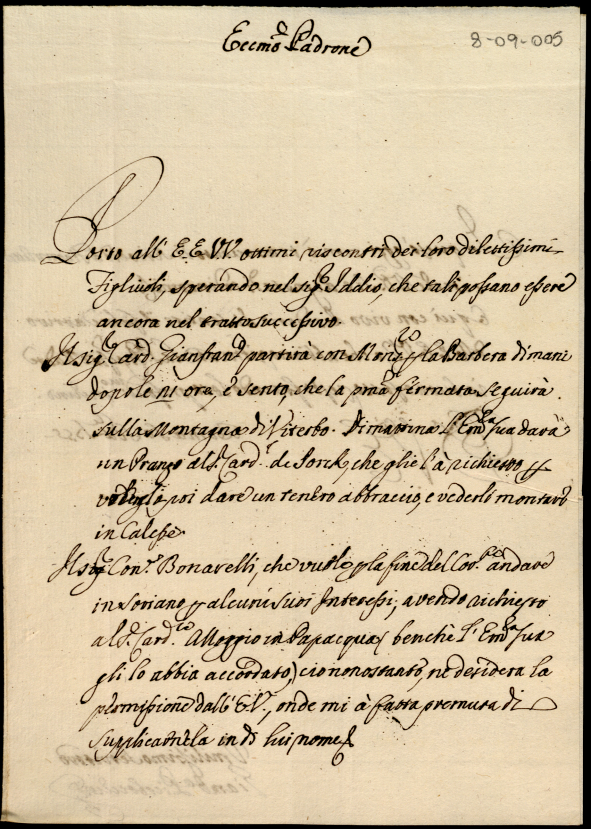 Eccmo Padrone
8-09-005
Porto all'E.E.VV. ottimi riscontri dei loro dilettissimi
Figliuoli, sperando nel sigr Iddio, che tali possano essere
ancora nel tratto successivo.
Il sigr Card. Gianfranco partirà con Monsr La Barbera dimani
dopo le 21 ora, e sento, che la pma fermata seguirà
sulla Montagna di Viterbo. Dimattina l'Emza sua darà
un Pranzo al Sr Card. de Sorck, che gliel'à richiesto p
poi dare un tenero abbraccio, e vederlo montare
in Calesse.
Il sigr Conte Bonarelli, che vuole p la fine del Corrte andare
in Soriano p alcuni suoi Interessi, avendo richiesto
al Sr Card. Alloggio in Papacqua (benchè l'Emza sua
gli lo abbia accordato) ciononostante, ne desidera la
permissione dall'E.V., onde mi à fatta premura di
supplicarnela in di lui nome.